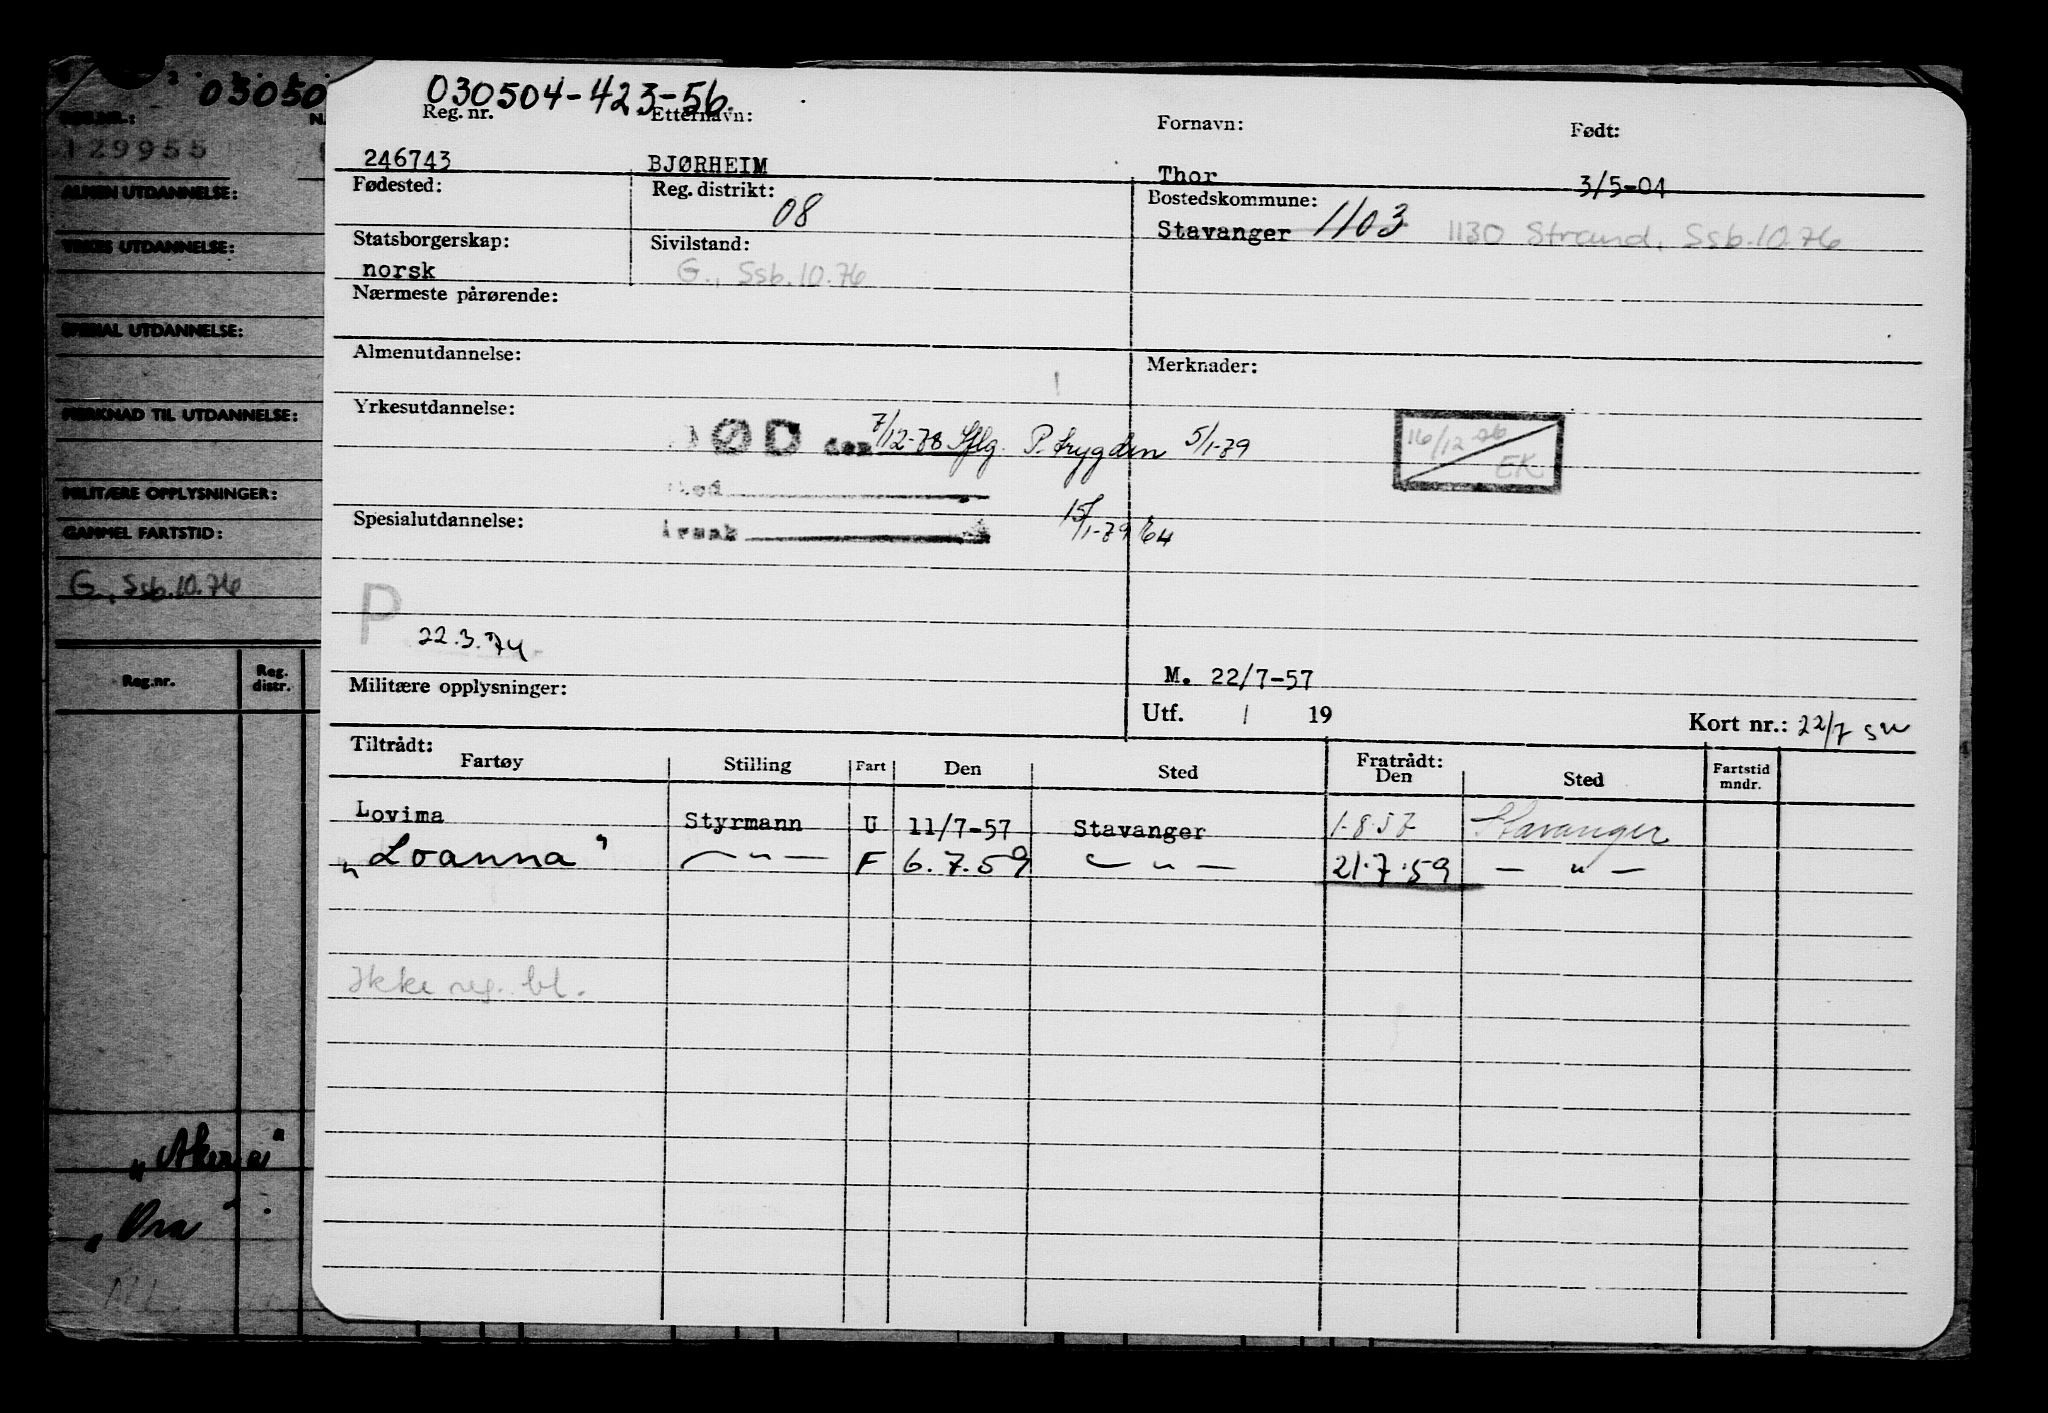 030504-423-56.
Reg. nr. Etternavn: Fornavn: Født:
246743 BJØRHEIM Thor 3/5-04
Fødested: Reg. distrikt: 08 Bostedskommune:
Stavanger 1103 1130 Strand, Ssb.10.76
Statsborgerskap: Sivilstand:
norsk G., Ssb.10.76
Nærmeste pårørende:
Almenutdannelse: Merknader:
Yrkesutdannelse:
DØD den 7/12-78 Iflg. P.trygden 5/1-79
16/12-76
EK.
Sted
Årsak
15/1-79
Spesialutdannelse:
P
22.3.74
M. 22/7-57
Militære opplysninger:
Utf. / 19 Kort nr.: 22/7
Tiltrådt: Fratrådt:
Fartøy Stilling Fart Den Sted Den Sted Fartstid mndr.
Lovima Styrmann U 11/7-57 Stavanger 1.8.57 Stavanger
„Loanna" — " — F 6.7.59 — " — 21.7.59 — " —
Ikke reg. bl.
03050
REG.NR.:
129955
ALMEN UTDANNELSE:
YRKES UTDANNELSE:
SPESIAL UTDANNELSE:
MERKNAD TIL UTDANNELSE:
MILITÆRE OPPLYSNINGER:
GAMMEL FARTSTID:
G., Ssb.10.76
Reg.nr. Reg. distr.